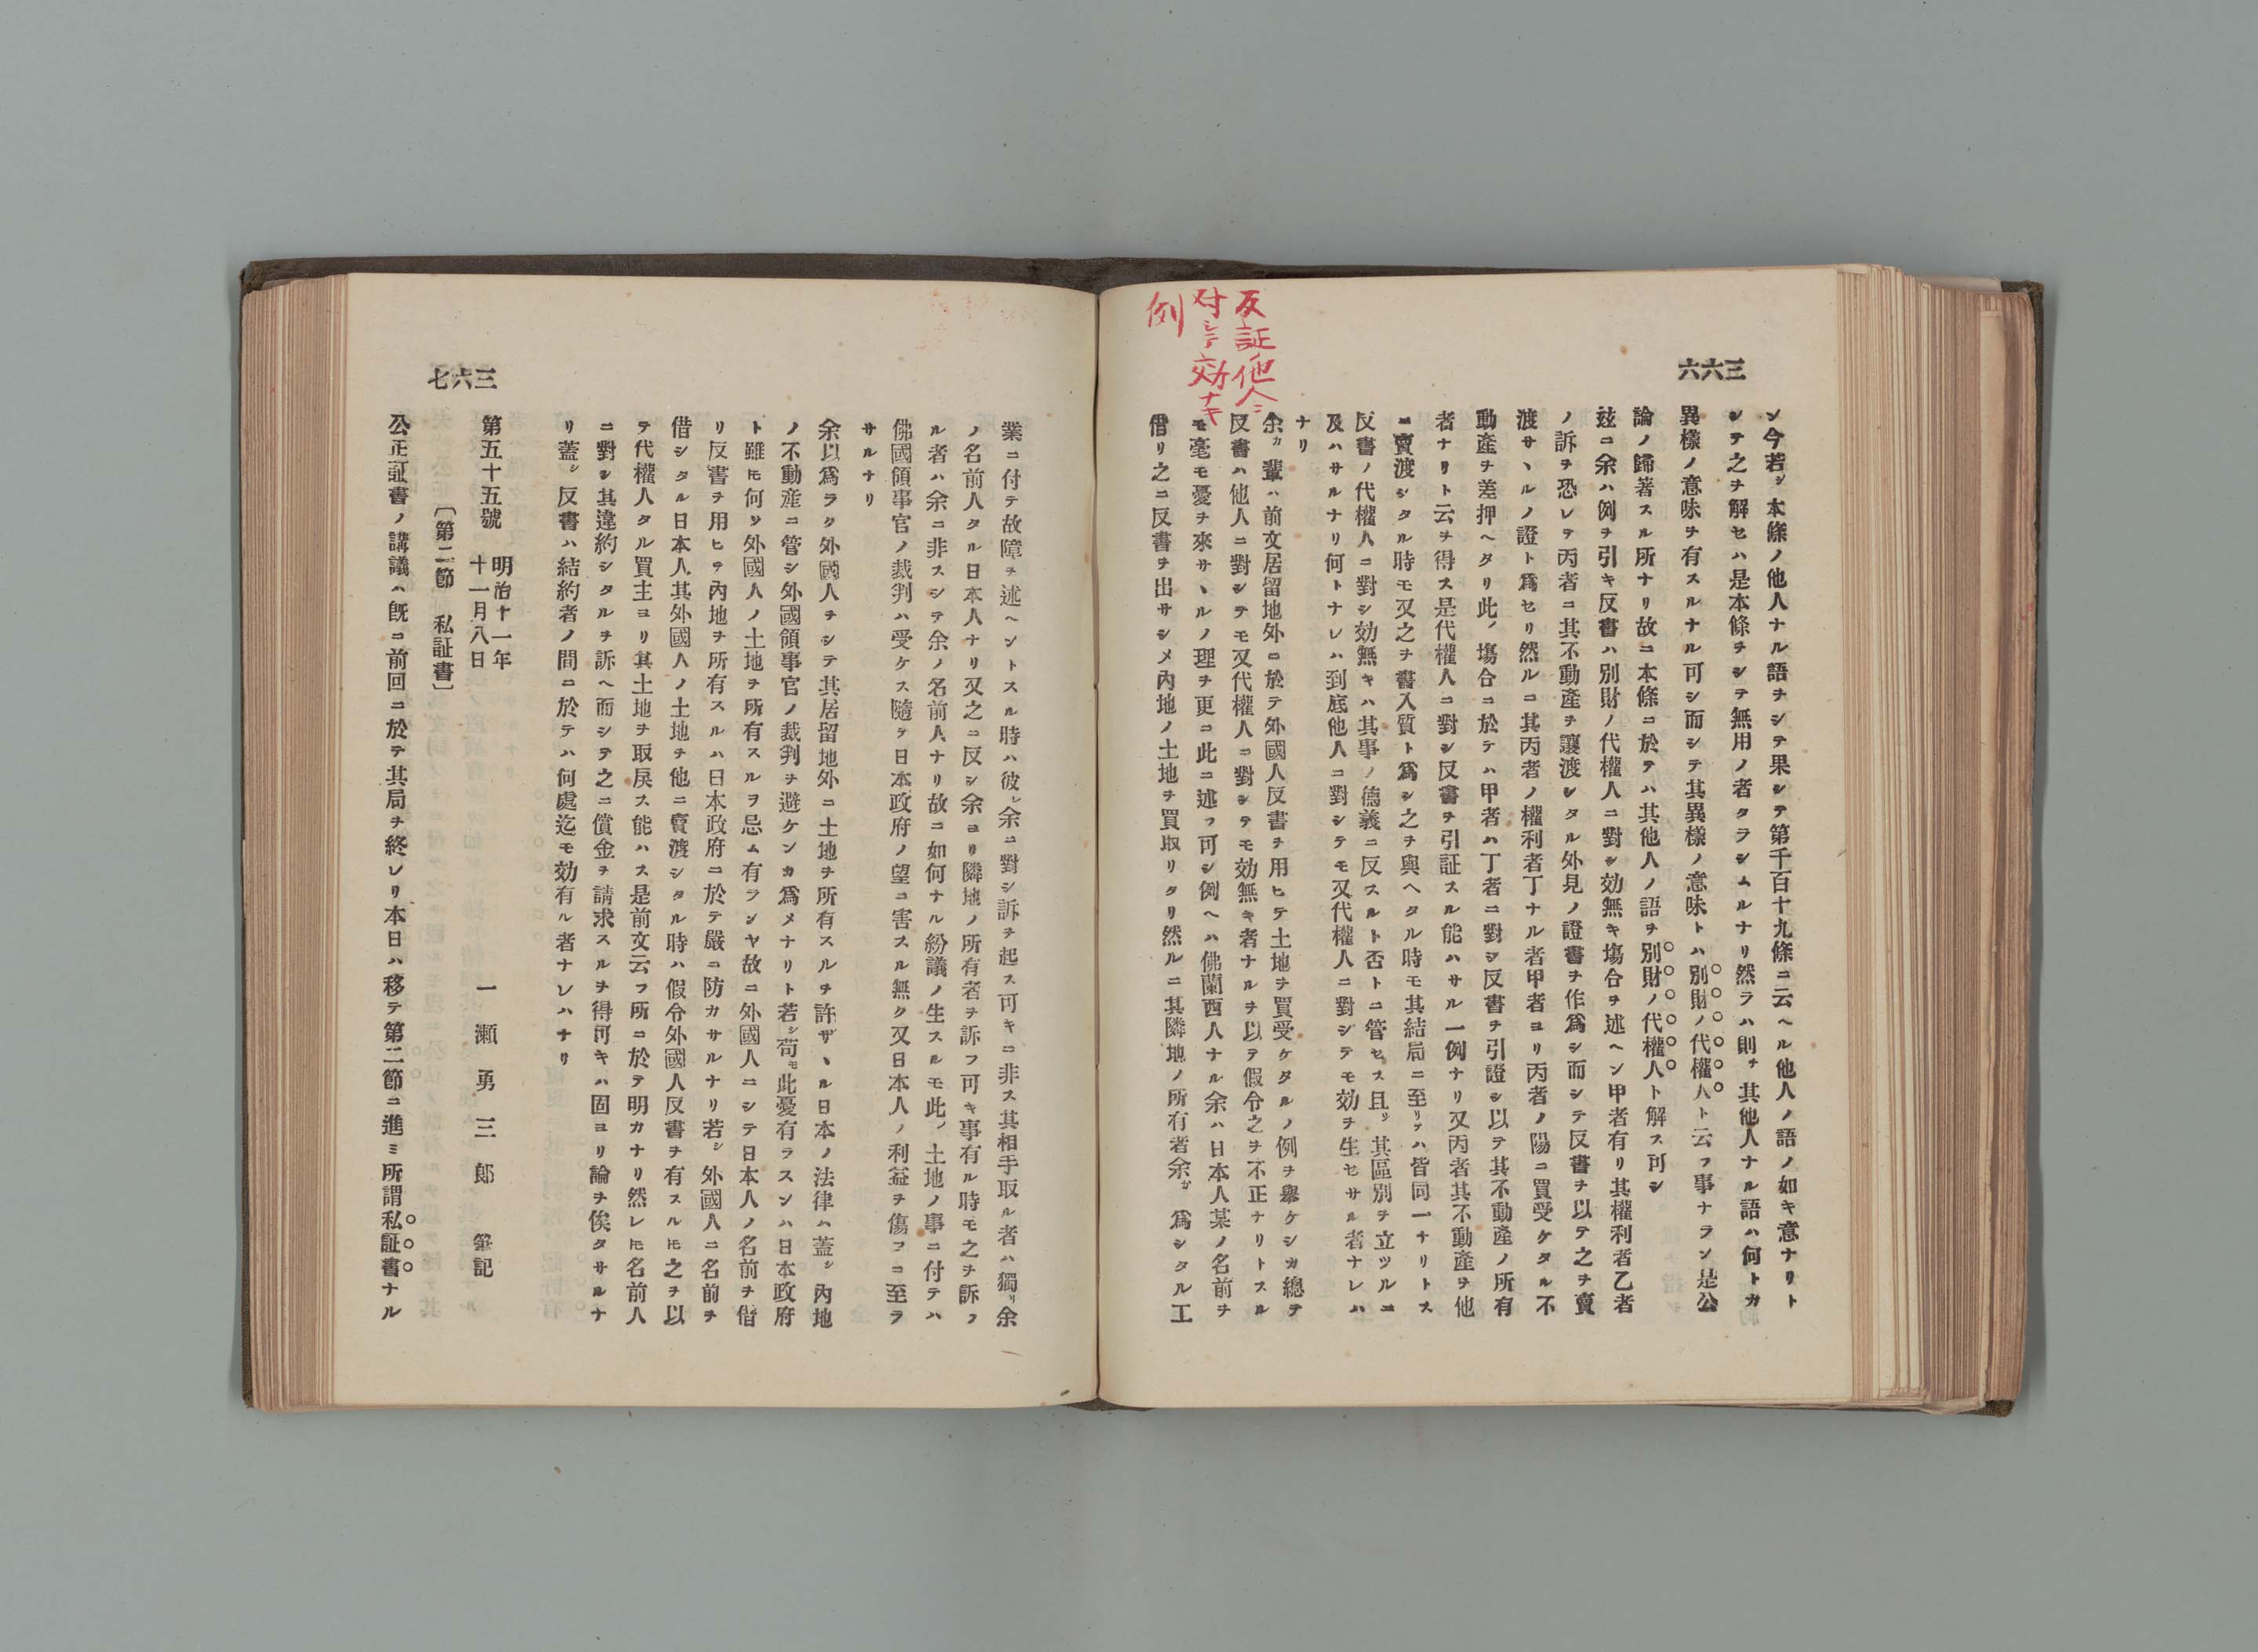 六六三
反証他人ニ
対シテ効ナキ
例
ン今若シ本條ノ他人ナル語ヲシテ果シテ第千百十九條ニ云ヘル他人ノ語ノ如キ意ナリト
シテ之ヲ解セハ是本條ヲシテ無用ノ者タラシムルナリ然ラハ則チ其他人ナル語ハ何トカ
異樣ノ意味ヲ有スルナル可シ而シテ其異樣ノ意味トハ別財ノ代權人ト云フ事ナラン是公
論ノ歸著スル所ナリ故ニ本條ニ於テハ其他人ノ語ヲ別財ノ代權人ト解ス可シ
玆ニ余ハ例ヲ引キ反書ハ別財ノ代權人ニ對シ効無キ塲合ヲ述ヘン甲者有リ其權利者乙者
ノ訴ヲ恐レテ丙者ニ其不動產ヲ讓渡シタル外見ノ證書ヲ作爲シ而シテ反書ヲ以テ之ヲ賣
渡サヽルノ證ト爲セリ然ルニ其丙者ノ權利者丁ナル者甲者ヨリ丙者ノ陽ニ買受ケタル不
動產ヲ差押ヘタリ此ノ塲合ニ於テハ甲者ハ丁者ニ對シ反書ヲ引證シ以テ其不動產ノ所有
者ナリト云ヲ得ス是代權人ニ對シ反書ヲ引証スル能ハサル一例ナリ又丙者其不動產ヲ他
ニ賣渡シタル時モ又之ヲ書入質ト爲シ之ヲ與ヘタル時モ其結局ニ至リテハ皆同一ナリトス
反書ノ代權人ニ對シ効無キハ其事ノ德義ニ反スルト否トニ管セス且ツ其區別ヲ立ツルニ
及ハサルナリ何トナレハ到底他人ニ對シテモ又代權人ニ對シテモ効ヲ生セサル者ナレハ
ナリ
余カ輩ハ前文居留地外ニ於テ外國人反書ヲ用ヒテ土地ヲ買受ケタルノ例ヲ舉ケシカ總テ
反書ハ他人ニ對シテモ又代權人ニ對シテモ効無キ者ナルヲ以テ假令之ヲ不正ナリトスル
モ毫モ憂ヲ來サヽルノ理ヲ更ニ此ニ述フ可シ例ヘハ佛蘭西人ナル余ハ日本人某ノ名前ヲ
借リ之ニ反書ヲ出サシメ內地ノ土地ヲ買取リタリ然ルニ其隣地ノ所有者余カ爲シタル工
業ニ付テ故障ヲ述ヘントスル時ハ彼レ余ニ對シ訴ヲ起ス可キニ非ス其相手取ル者ハ獨リ余
ノ名前人タル日本人ナリ又之ニ反シ余ヨリ隣地ノ所有者ヲ訴フ可キ事有ル時モ之ヲ訴フ
ル者ハ余ニ非スシテ余ノ名前人ナリ故ニ如何ナル紛議ノ生スルモ此ノ土地ノ事ニ付テハ
佛國領事官ノ裁判ハ受ケス隨テ日本政府ノ望ニ害スル無ク又日本人ノ利益ヲ傷フニ至ラ
サルナリ
余以爲ラク外國人ヲシテ其居留地外ニ土地ヲ所有スルヲ許サヽル日本ノ法律ハ蓋シ內地
ノ不動產ニ管シ外國領事官ノ裁判ヲ避ケンカ爲メナリト若シ苟モ此憂有ラスンハ日本政府
ト雖モ何ソ外國人ノ土地ヲ所有スルヲ忌ム有ランヤ故ニ外國人ニシテ日本人ノ名前ヲ借
リ反書ヲ用ヒテ內地ヲ所有スルハ日本政府ニ於テ嚴ニ防カサルナリ若シ外國人ニ名前ヲ
借シタル日本人其外國人ノ土地ヲ他ニ賣渡シタル時ハ假令外國人反書ヲ有スルモ之ヲ以
テ代權人タル買主ヨリ其土地ヲ取戾ス能ハス是前文云フ所ニ於テ明カナリ然レ𪜈名前人
ニ對シ其違約シタルヲ訴ヘ而シテ之ニ償金ヲ請求スルヲ得可キハ固ヨリ論ヲ俟タサルナ
リ蓋シ反書ハ結約者ノ間ニ於テハ何處迄モ効有ル者ナレハナリ
七六三
第五十五號　明治十一年
十一月八日
一瀨勇三郎　筆記
〔第二節　私証書〕
公正証書ノ講議ハ旣ニ前回ニ於テ其局ヲ終レリ本日ハ移テ第二節ニ進ミ所謂私証書ナル